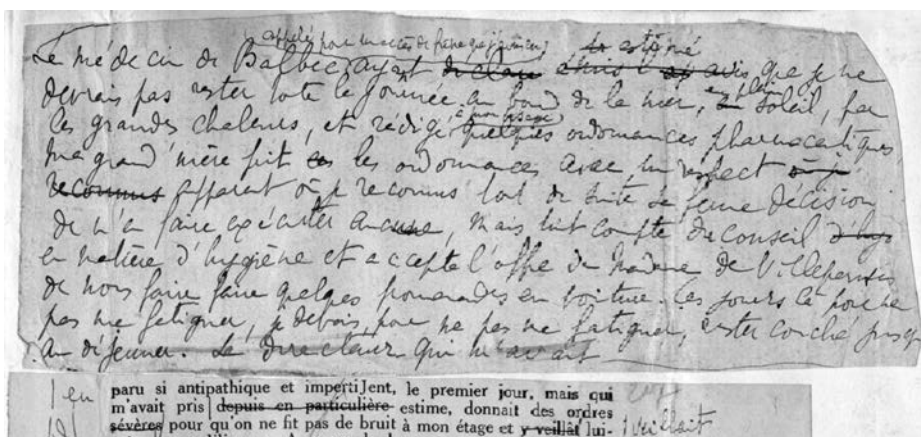 appelé pour un accès de fièvre que j'avais eu, estimé
Le médecin de Balbec ayant avis que je ne
en plein
devrais pas rester toute la journée au bord de la mer, au soleil, par
les grandes chaleurs, et rédigé quelques ordonnances pharmaceutiques
à mon usage
ma grand'mère prit ces les ordonnances avec un respect où je
reconnus apparent où je reconnus tout de suite sa ferme décision
de n'en faire exécuter aucune, mais tint compte du conseil d'hyg
en matière d'hygiène et accepta l'offre de Madame de Villeparisis
de nous faire faire quelques promenades en voiture. Ces jours là pour ne
pas me fatiguer, je devais, pour ne pas me fatiguer, rester couché jusqu'
au déjeuner. Le directeur qui m'avait
en paru si antipathique et impertiJent, le premier jour, mais qui
m'avait pris depuis en particulière estime, donnait des ordres
sévères pour qu'on ne fit pas de bruit à mon étage et y veillât lui- veillait